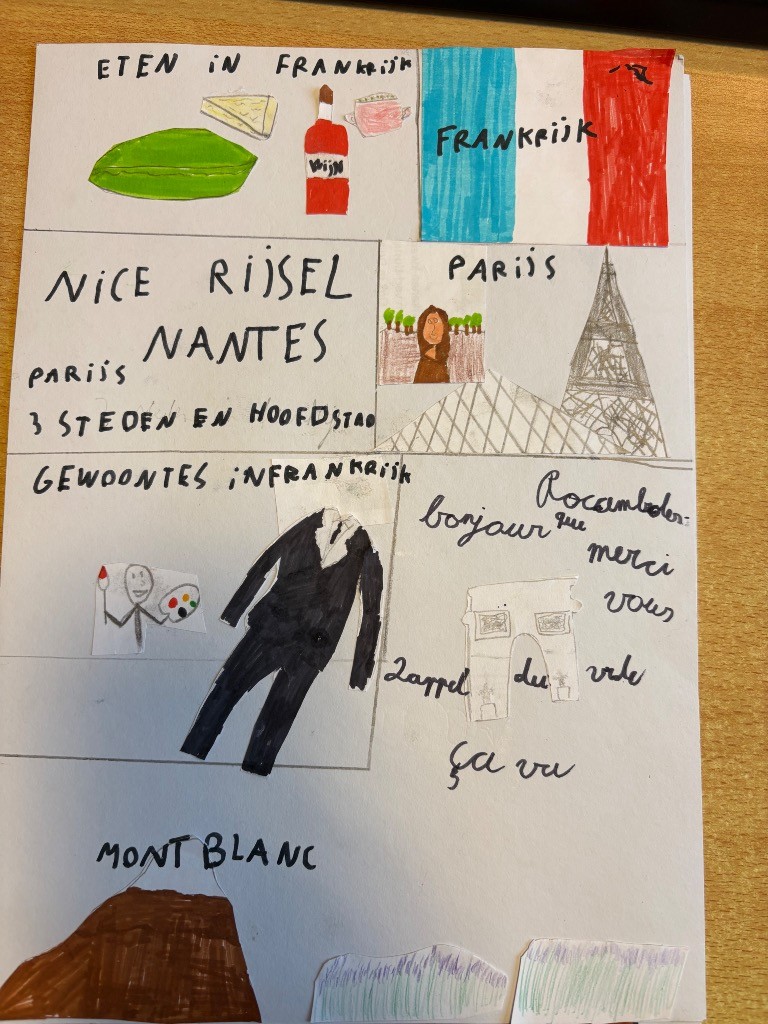 ETEN IN FRANKRIJK
WIJN
FRANKRIJK
NICE RIJSEL
NANTES
PARIJS
3 STEDEN EN HOOFDSTAD
PARIJS
GEWOONTES INFRANKRIJK
bonjour
Rocamboles-
que
merci
vous
L'appel du vide
ça va
MONT BLANC